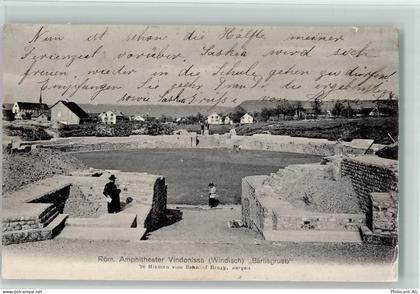 Nun ist schon die Hälfte meiner
Ferienzeit vorüber. Saskia wird sich
freuen, wieder in die Schule gehen zu dürfen
Empfangen Sie sowie Saskia
Röm. Amphitheater Vindonissa (Windisch) „Bärlisgrueb“
20 Minuten vom Bahnhof Brugg,